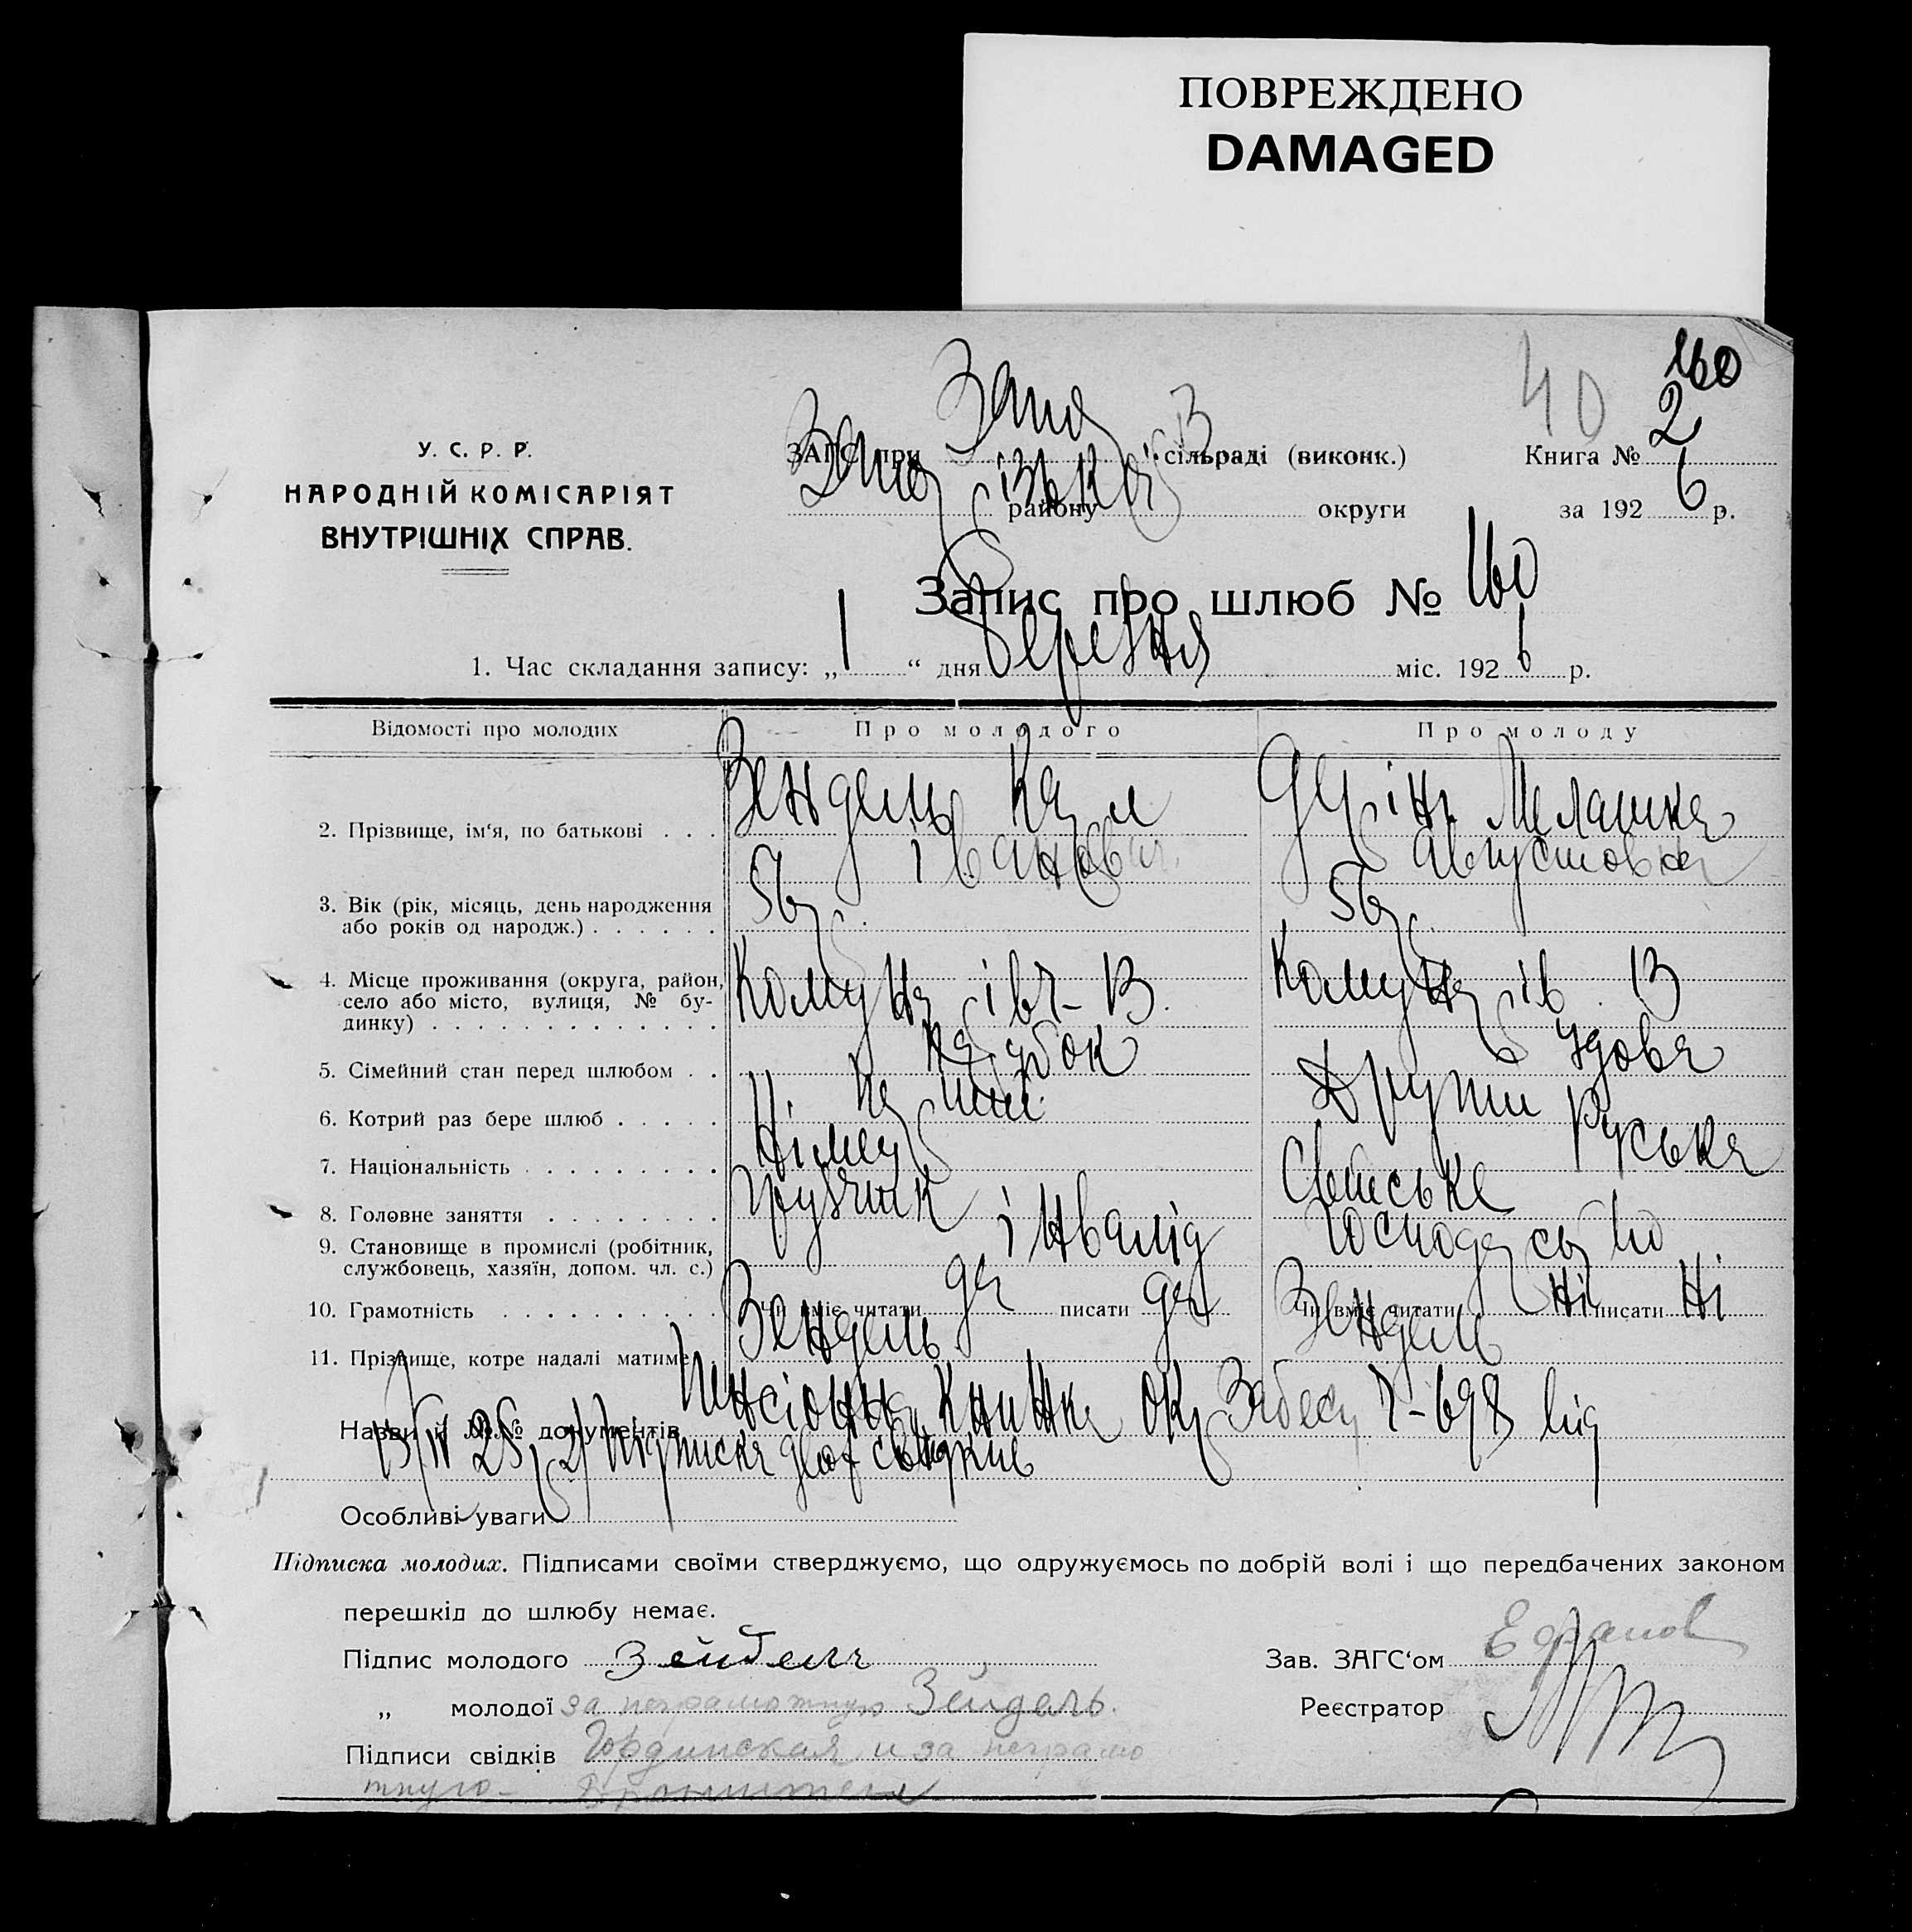 ПОВРЕЖДЕНО
DAMAGED
160
40
У. С. Р. Р.
НАРОДНІЙ КОМІСАРІЯТ
ВНУТРІШНІХ СПРАВ.
ЗАГС при сільраді (виконк.)
Книга № 2
району округи за 1926 р.
Запис про шлюб № 160
1. Час складання запису: „1“ дня березня міс. 1926 р.
Відомості про молодих Про молодого Про молоду
2. Прізвище, ім‘я, по батькові . . . Зендель Карл Дерінг Мелашка
Іванович Августовна
3. Вік (рік, місяць, день народження 56 р. 56 р.
або років од народж.) . . . . . .
4. Місце проживання (округа, район, Комунарів 13 Комунарів 13
село або місто, вулиця, № бу-
динку) . . . . . . . . . . . . .
5. Сімейний стан перед шлюбом . . парубок Удова
6. Котрий раз бере шлюб . . . . . перший Другий
7. Національність . . . . . . . . . Німец Руська
8. Головне заняття . . . . . . . . Грузчик
9. Становище в промислі (робітник, інвалід Господарство
службовець, хазяїн, допом. чл. с.)
10. Грамотність . . . . . . . . . . Чи вміє читати да писати да Чи вміє читати ні писати ні
11. Прізвище, котре надалі матиме . Зендель Зендель
Назви й №№ документів Пенсіонна книжка 7-698 від
25 р. 2/ Підписка двох свідків
Особливі уваги
Підписка молодих. Підписами своїми стверджуємо, що одружуємось по добрій волі і що передбачених законом
перешкід до шлюбу немає.
Підпис молодого Зейдель
Зав. ЗАГС‘ом
„ молодої за неграмотную Зейдель.
Реєстратор
Підписи свідків Гординская и за неграмо
тную